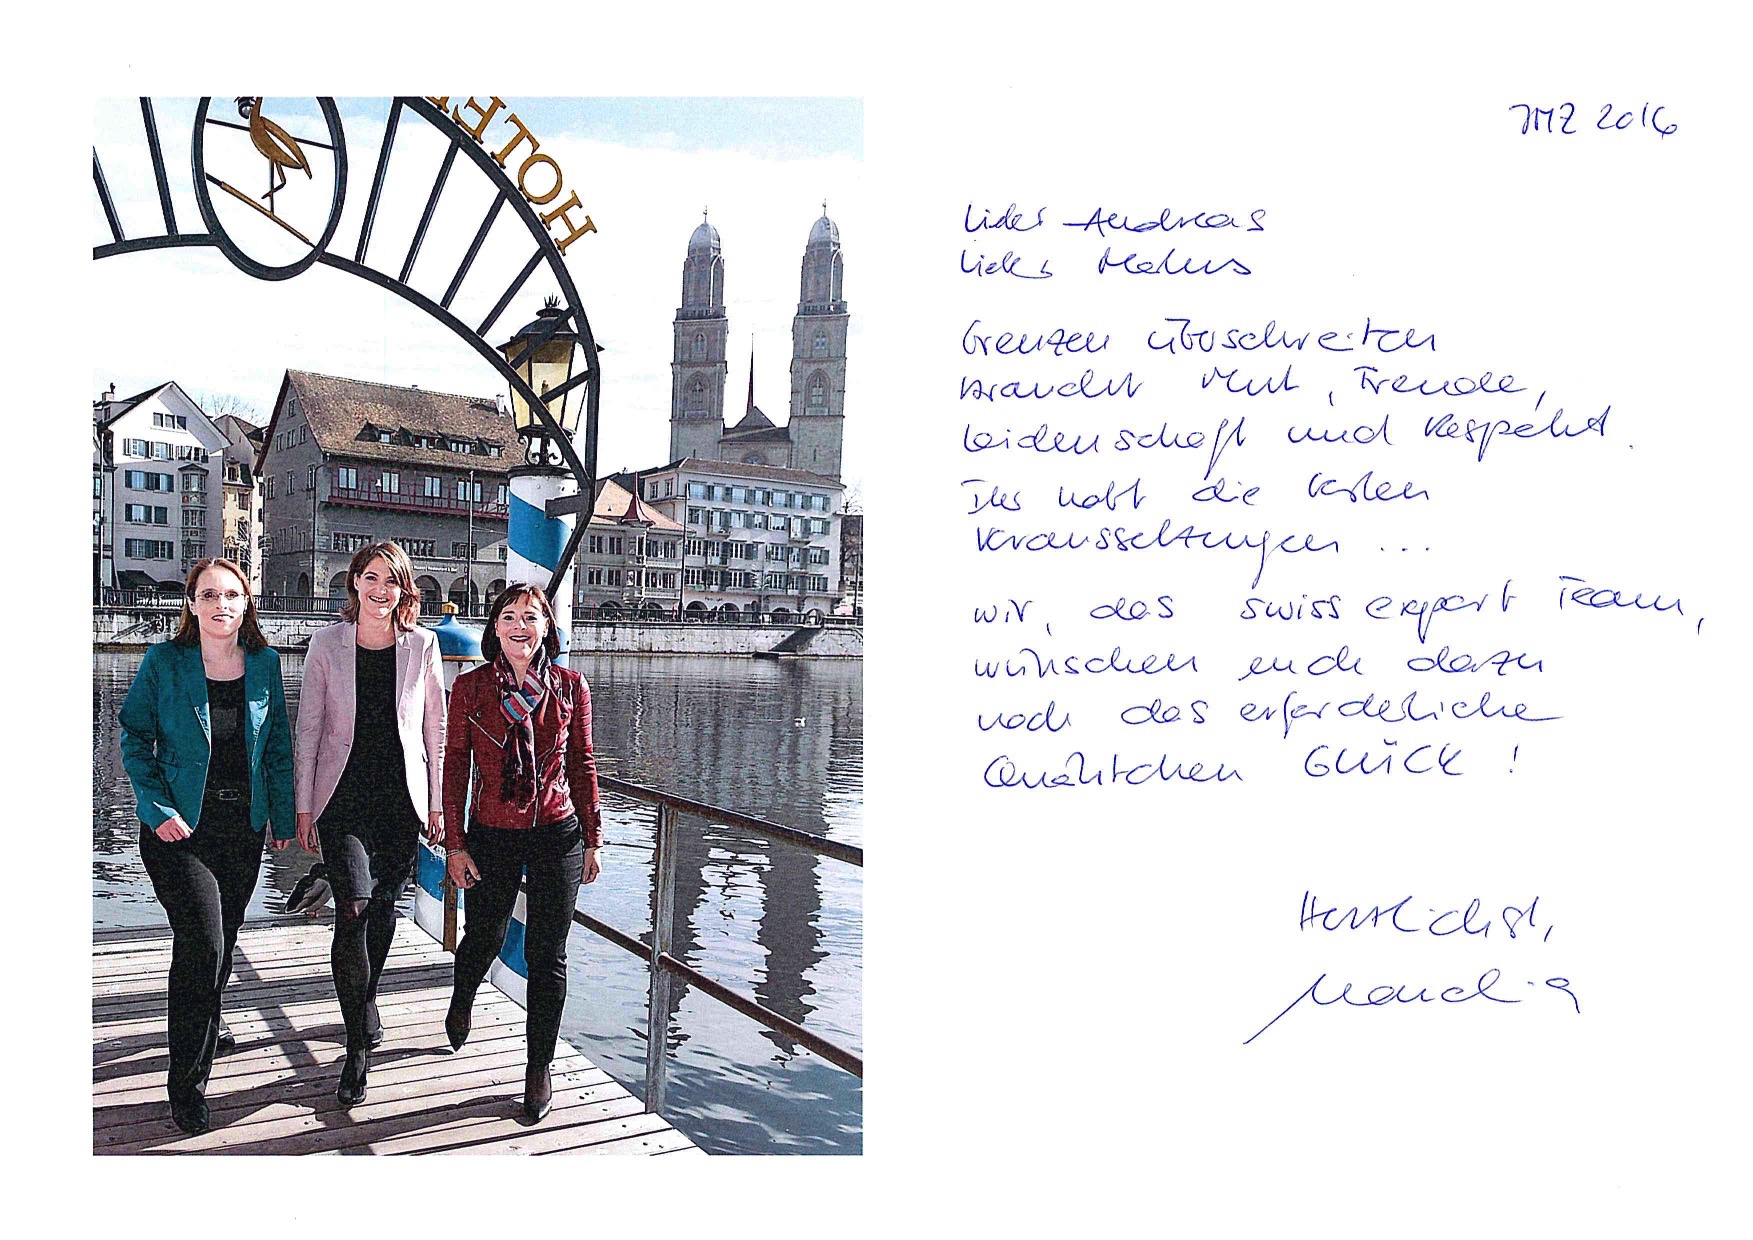 HOTE
JMZ 2016
Lieber Andreas
Lieber Markus
Grenzen überschreiten
braucht Mut, Freude,
Leidenschaft und Respekt.
Ihr habt die besten
Voraussetzungen ...
wir, das swiss export Team,
wünschen euch dazu
noch das erforderliche
Quäntchen GLÜCK!
Herzlichst,
Claudia